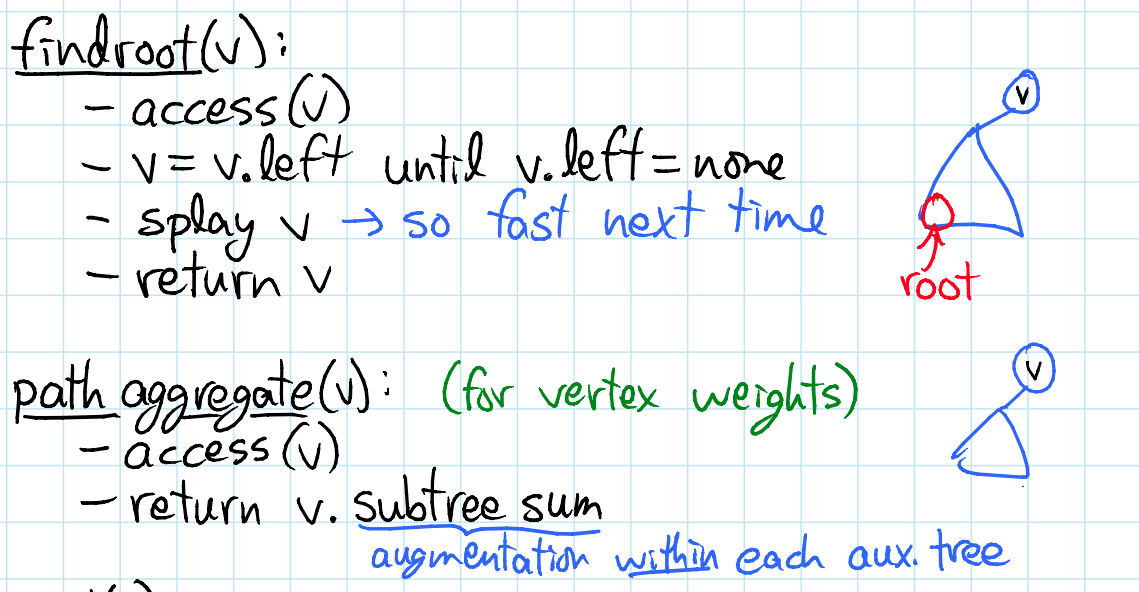 findroot(v):
- access(v)
- v = v.left until v.left = none
- splay v → so fast next time
- return v
v
root
path aggregate(v): (for vertex weights)
- access(v)
- return v. subtree sum
augmentation within each aux. tree
v